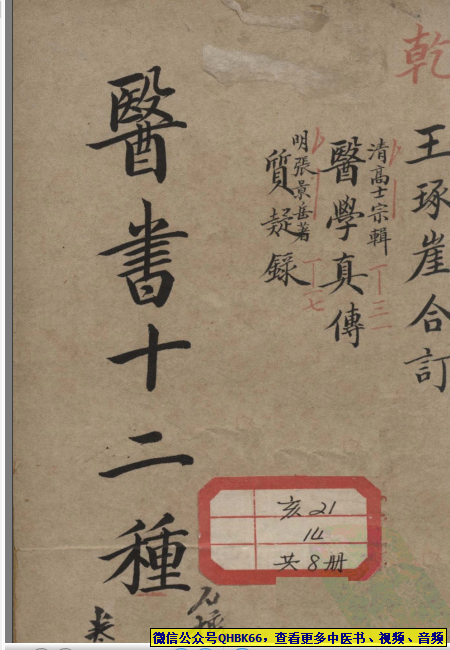 乾
王琢崖合訂
清高士宗輯
醫學真傳
明張景岳著
質疑錄
醫書十二種
亥21
14
共8册
微信公众号QHBK66，查看更多中医书、视频、音频